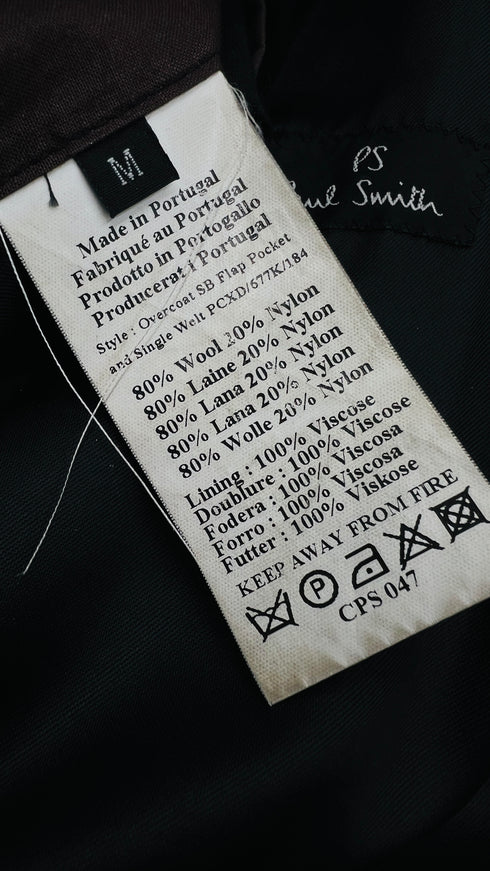 M
PS
aul Smith
Made in Portugal
Fabriqué au Portugal
Prodotto in Portogallo
Producerat i Portugal
Style : Overcoat SB Flap Pocket
and Single Welt PCXD/677K/184
80% Wool 20% Nylon
80% Laine 20% Nylon
80% Lana 20% Nylon
80% Lana 20% Nylon
80% Wolle 20% Nylon
Lining : 100% Viscose
Doublure : 100% Viscose
Fodera : 100% Viscosa
Forro : 100% Viscosa
Futter : 100% Viskose
KEEP AWAY FROM FIRE
P
CPS 047